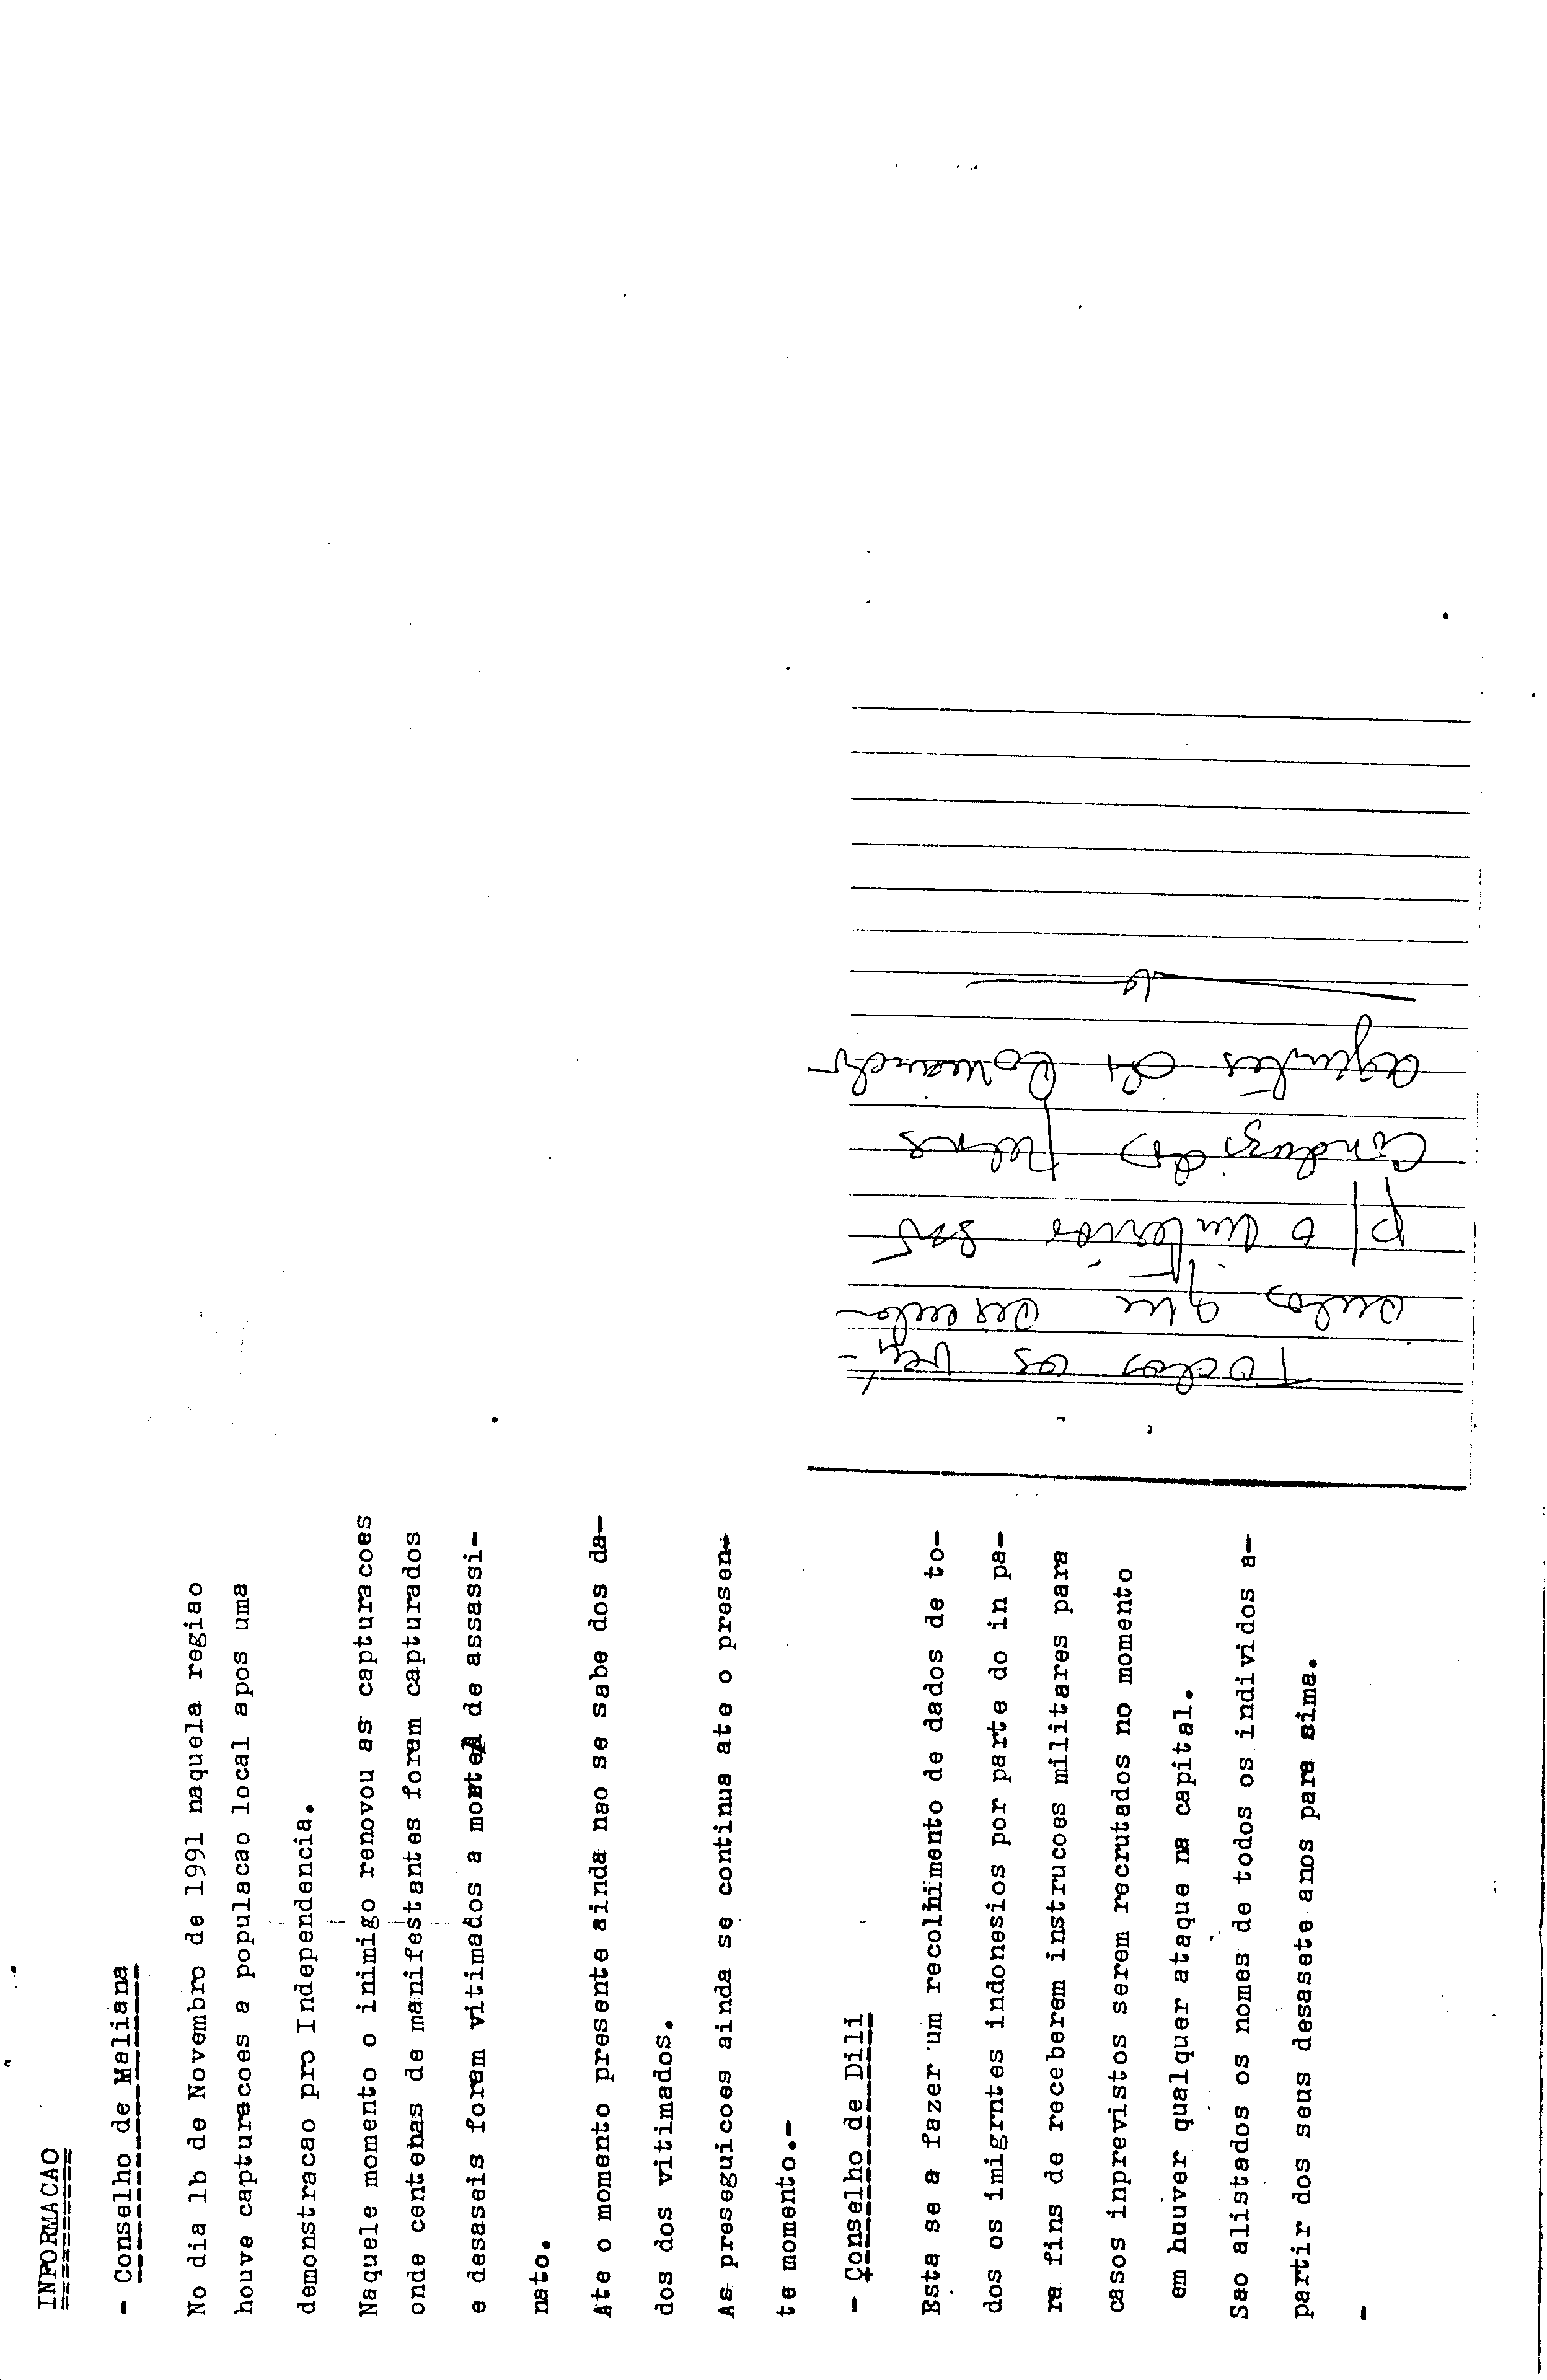 INFORMACAO
- Conselho de Maliana
No dia 1b de Novembro de 1991 naquela regiao
houve capturacoes a populacao local apos uma
demonstracao pro Independencia.
Naquele momento o inimigo renovou as capturacoes
onde centenas de manifestantes foram capturados
e desaseis foram vitimados a mortes de assassi-
nato.
Ate o momento presente ainda nao se sabe dos da-
dos dos vitimados.
As preseguicoes ainda se continua ate o presen-
te momento.-
- Conselho de Dili
Esta se a fazer um recolhimento de dados de to-
dos os imigrntes indonesios por parte do in pa-
ra fins de receberem instrucoes militares para
casos inprevistos serem recrutados no momento
em hauver qualquer ataque na capital.
Sao alistados os nomes de todos os individos a-
partir dos seus desasete anos para sima.
-
Todos os veí-
culos que escula
p/ o interior são
Conduzidos pelos
agentes do Comando